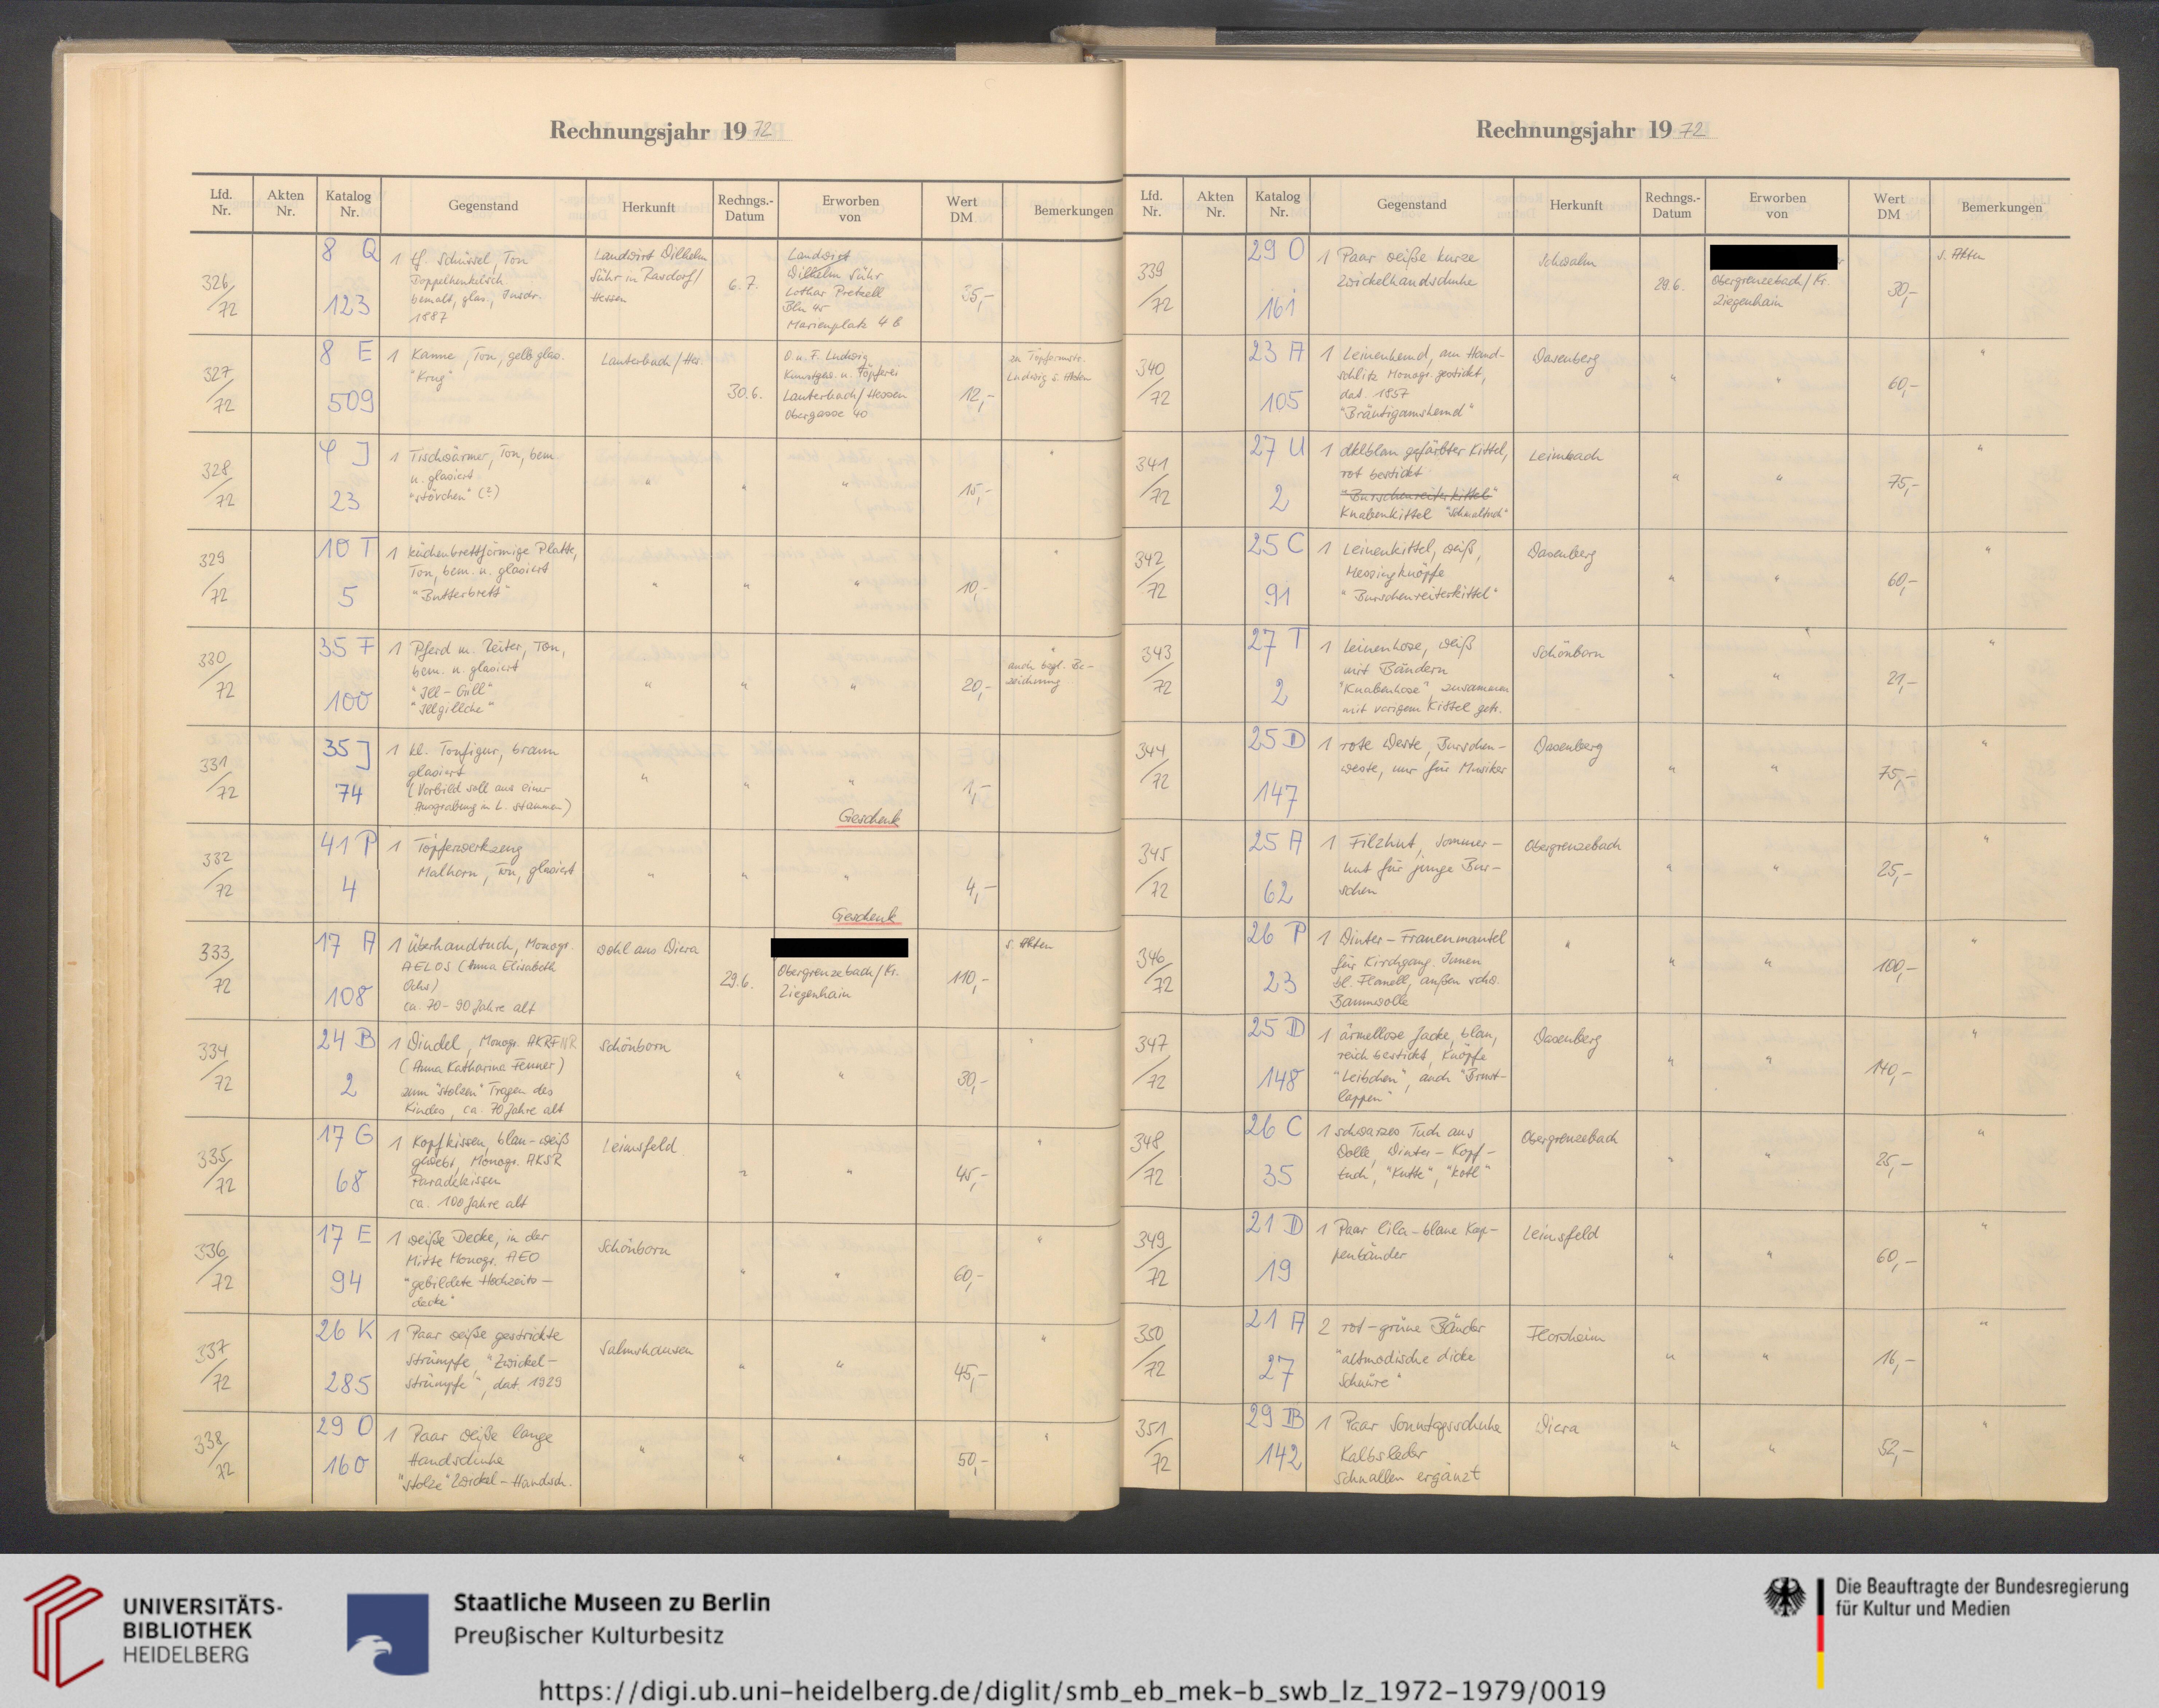 Rechnungsjahr 19 72
Lfd. Nr.
Akten Nr.
Katalog Nr.
Gegenstand
Herkunft
Rechngs.-Datum
Erworben von
Wert DM
Bemerkungen
326/72
8 Q 123
1 tf. Schüssel, Ton
Doppelhenkelsch.
bemalt, glas., Inschr.
1887
Landwirt Wilhelm
Sühr in Rasdorf/
Hessen
6.7.
Landwirt
Wilhelm Sühr
Lothar Pretzell
Bln 45
Marienplatz 4 B
35,-
327/72
8 E 509
1 Kanne, Ton, gelb glas.
"Krug"
Lauterbach/Hes.
30.6.
O. u. F. Ludwig
Kunstgew. u. Töpferei
Lauterbach/Hessen
Obergasse 40
12,-
zu Töpfermstr.
Ludwig s. Akten
328/72
4 J 23
1 Tischwärmer, Ton, bem.
u. glasiert
"Stövchen" (?)
"
"
"
15,-
"
329/72
10 T 5
1 küchenbrettförmige Platte,
Ton, bem. u. glasiert
"Butterbrett"
"
"
"
10,-
"
330/72
35 F 100
1 Pferd m. Reiter, Ton,
bem. u. glasiert
"Ill-Gill"
"Illgillche"
"
"
"
20,-
"
auch bzgl. Be-
zeichnung
331/72
35 J 74
1 kl. Tonfigur, braun
glasiert
(Vorbild soll aus einer
Ausgrabung in L. stammen)
"
"
"
Geschenk
1,-
332/72
41 P 4
1 Töpferwerkzeug
Malhorn, Ton, glasiert
"
"
"
Geschenk
4,-
333/72
17 A 108
1 Überhandtuch, Monogr.
AELOS (Anna Elisabeth
ca. 70-90 Jahre alt
wohl aus Wiera
29.6.
Obergrenzebach/Kr.
Ziegenhain
110,-
s. Akten
334/72
24 B 2
1 Windel, Monogr. AKRFNR
(Anna Katharina Fenner)
zum "stolzen" Tragen des
Kindes, ca. 70 Jahre alt
Schönborn
"
"
30,-
"
335/72
17 G 68
1 Kopfkissen, blau-weiß
gewebt, Monogr. AKSR
Paradekissen
ca. 100 Jahre alt
Leimsfeld
"
"
45,-
"
336/72
17 E 94
1 weiße Decke, in der
Mitte Monogr. AEO
"gebildete Hochzeits-
decke"
Schönborn
"
"
60,-
"
337/72
26 K 285
1 Paar weiße gestrickte
Strümpfe, "Zwickel-
strümpfe", dat. 1929
Salmshausen
"
"
45,-
"
338/72
29 O 160
1 Paar weiße lange
Handschuhe
"stolze" Zwickel-Handsch.
"
"
"
50,-
"
Rechnungsjahr 19 72
Lfd. Nr.
Akten Nr.
Katalog Nr.
Gegenstand
Herkunft
Rechngs.-Datum
Erworben von
Wert DM
Bemerkungen
339/72
29 O 161
1 Paar weiße kurze
Zwickelhandschuhe
Schwalm
29.6.
Obergrenzebach/Kr.
Ziegenhain
30,-
s. Akten
340/72
23 A 105
1 Leinenhemd, am Hand-
schlitz Monogr. gestickt,
dat. 1857
"Bräutigamshemd"
Wasenberg
"
"
60,-
"
341/72
27 U 2
1 dklblau gefärbter Kittel,
rot bestickt
"Burschenreiterkittel"
Knabenkittel
Leimbach
"
"
75,-
"
342/72
25 C 91
1 Leinenkittel, weiß,
Messingknöpfe
"Burschenreiterkittel"
Wasenberg
"
"
60,-
"
343/72
27 T 2
1 Leinenhose, weiß
mit Bändern
"Knabenhose" zusammen
mit vorigem Kittel getr.
Schönborn
"
"
21,-
"
344/72
25 D 147
1 rote Weste, Burschen-
weste, nur für Musiker
Wasenberg
"
"
75,-
"
345/72
25 A 62
1 Filzhut, Sommer-
hut für junge Bur-
schen
Obergrenzebach
"
"
25,-
"
346/72
26 P 23
1 Winter-Frauenmantel
für Kirchgang. Innen
bl. Flanell, außen schw.
Baumwolle
"
"
"
100,-
"
347/72
25 D 148
1 ärmellose Jacke, blau,
reich bestickt, Knöpfe
"Leibchen", auch "Brust-
lappen"
Wasenberg
"
"
140,-
"
348/72
26 C 35
1 schwarzes Tuch aus
Wolle, Winter-Kopf-
tuch, "Kutte",
Obergrenzebach
"
"
25,-
"
349/72
21 D 19
1 Paar lila-blaue Kap-
penbänder
Leimsfeld
"
"
60,-
"
350/72
21 A 27
2 rot-grüne Bänder
"altmodische dicke
Schnüre"
Florsheim
"
"
16,-
"
351/72
29 B 142
1 Paar Sonntagsschuhe
Kalbsleder
Schnallen ergänzt
Wiera
"
"
52,-
"
UNIVERSITÄTS-
BIBLIOTHEK
HEIDELBERG
Staatliche Museen zu Berlin
Preußischer Kulturbesitz
Die Beauftragte der Bundesregierung
für Kultur und Medien
https://digi.ub.uni-heidelberg.de/diglit/smb_eb_mek-b_swb_lz_1972-1979/0019